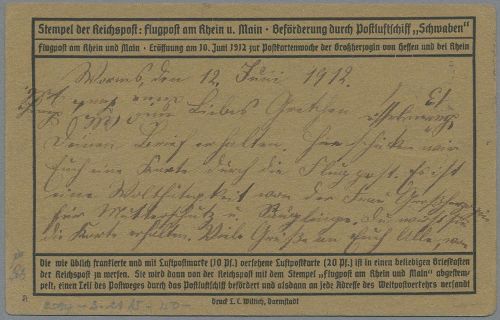 Stempel der Reichspost: Flugpost am Rhein u. Main · Beförderung durch Postluftschiff „Schwaben"
Flugpost am Rhein und Main · Eröffnung am 10. Juni 1912 zur Postkartenwoche der Großherzogin von Hessen und bei Rhein
Worms, den 12. Juni 1912.
Liebes Gretchen
Deinen Brief erhalten. Hier schicken wir
Euch eine Karte durch die Flugpost. Es ist
eine Wohltätigkeit von der Frau Großherzogin
für Mutterschutz u. Säuglinge. Du mußt
die Karte erhalten. Viele Grüße an Euch Alle, von
Die wie üblich frankierte und mit Luftpostmarke (10 Pf.) versehene Luftpostkarte (20 Pf.) ist in einen beliebigen Briefkasten
der Reichspost zu werfen. Sie wird dann von der Reichspost mit dem Stempel „Flugpost am Rhein und Main" abgestem-
pelt, einen Teil des Postweges durch das Postluftschiff befördert und alsdann an jede Adresse des Weltpostverkehrs versandt
Druck L. C. Wittich, Darmstadt